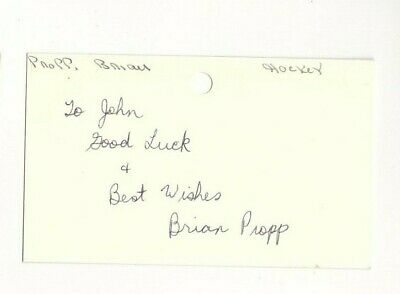 Propp. Brian Hockey
To John
Good Luck
&
Best Wishes
Brian Propp